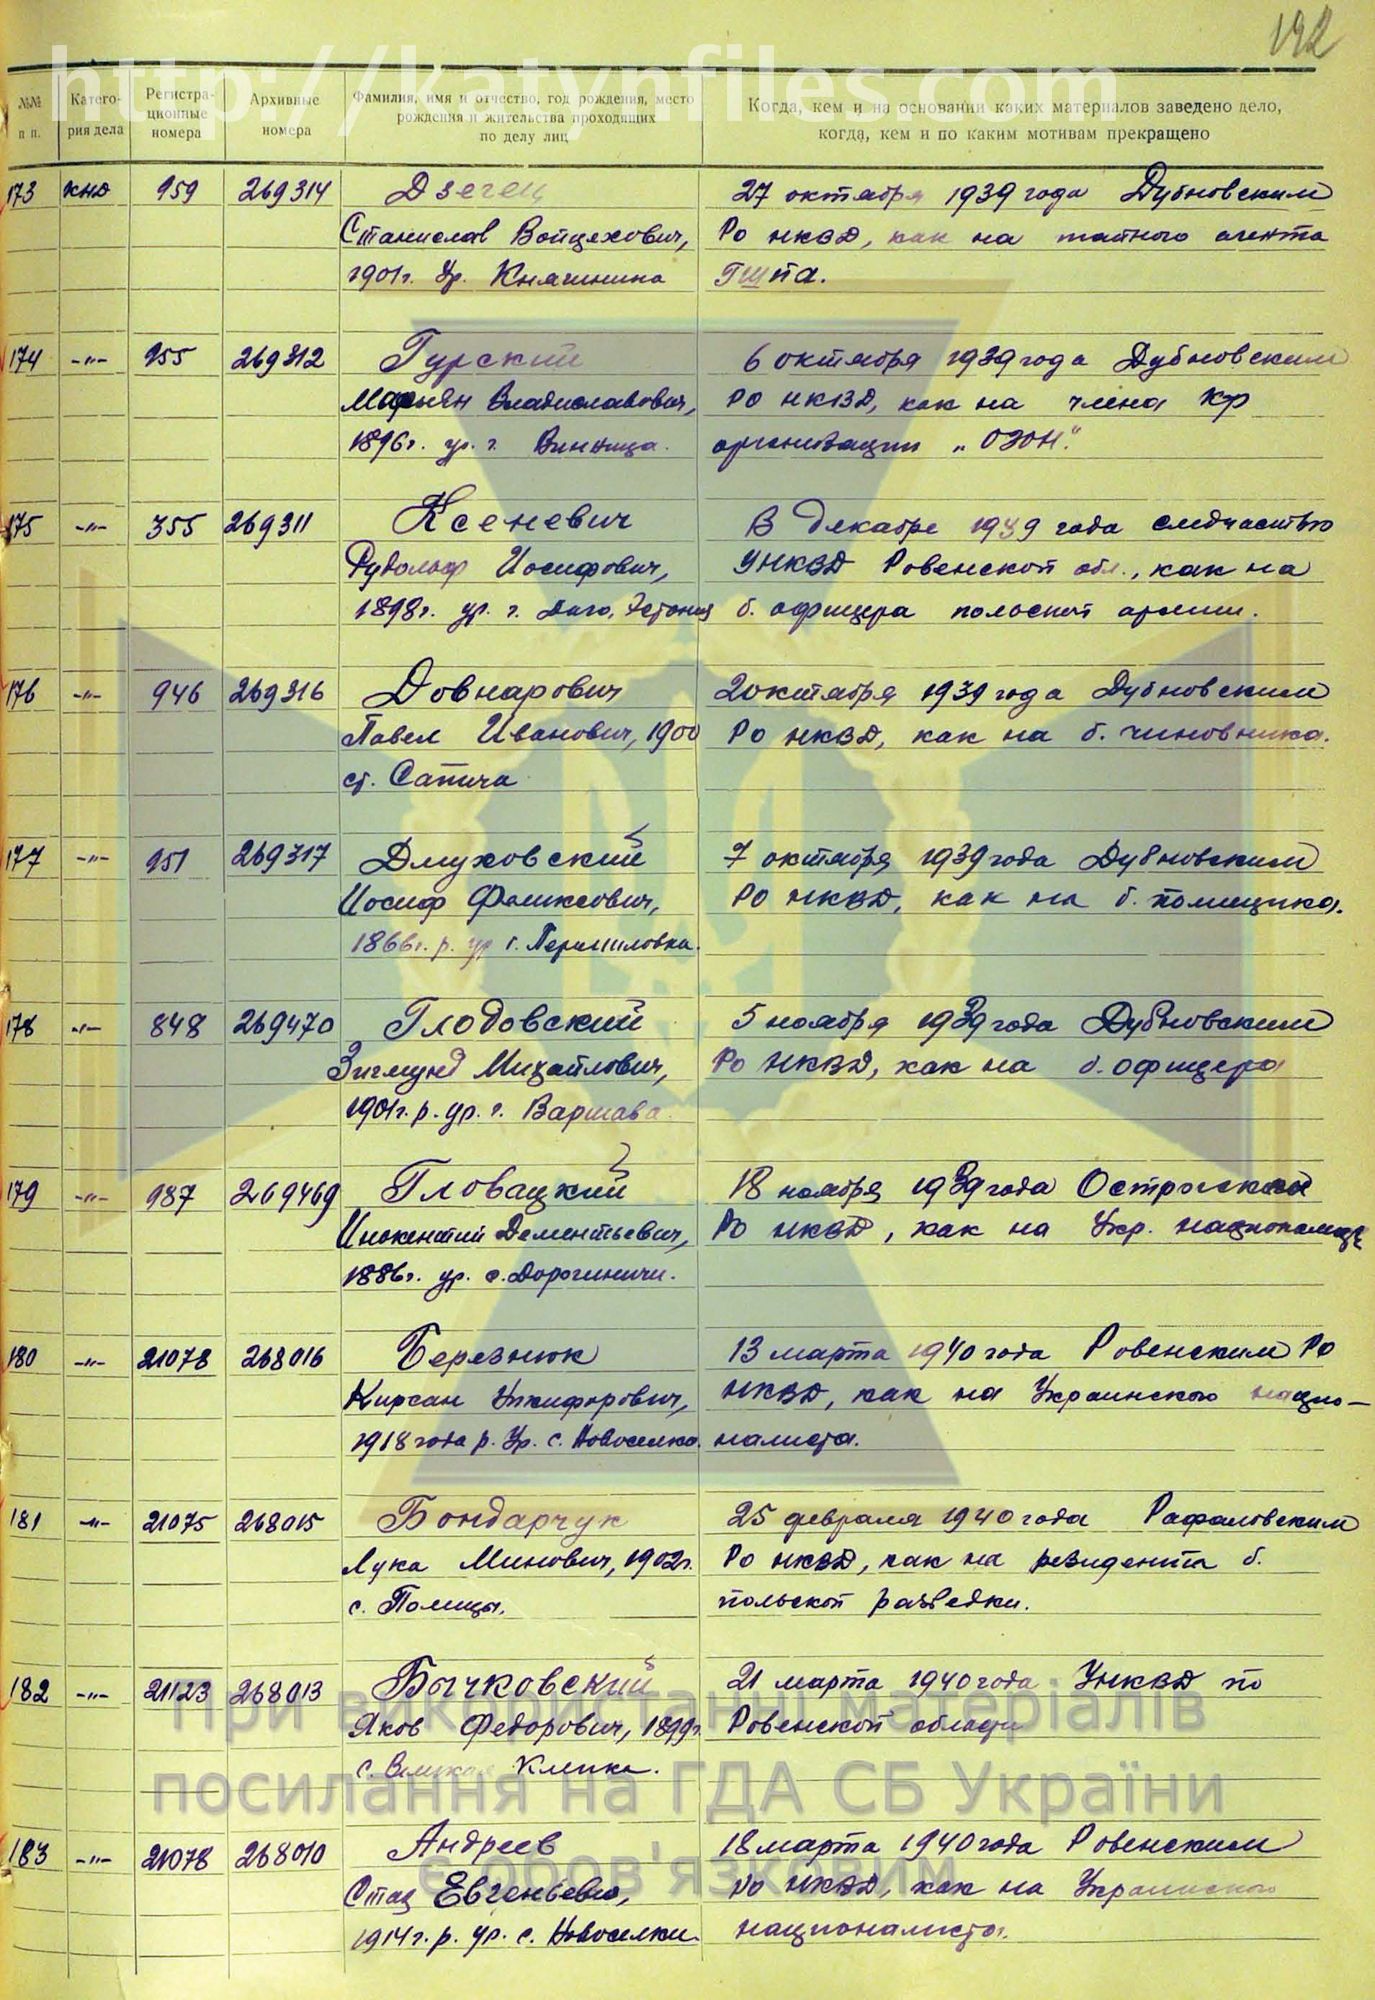 192
http://katynfiles.com
№№ п п.
Катего-
рия дела
Регистра-
ционные
номера
Архивные
номера
Фамилия, имя и отчество, год рождения, место
рождения и жительства проходящих
по делу лиц
Когда, кем и на основании каких материалов заведено дело,
когда, кем и по каким мотивам прекращено
173 КНД 959 269314 Дзегец 27 октября 1939 года Дубновским
Станислав Войцехович, РО НКВД, как на тайного агента
1901г. Ур. Княгинино
174 -"- 955 269312 Гурский 6 октября 1939 года Дубновским
Марьян Владиславович, РО НКВД, как на члена КР
1896г. ур. г. Винница. организации „ОЗОН".
175 -"- 355 269311 Ксеневич В декабре 1939 года следчастью
Рудольф Иосифович, УНКВД Ровенской обл., как на
1898г. ур. г. Даго, Эстония б. офицера польской армии.
176 -"- 946 269316 Довнарович 2 октября 1939 года Дубновским
Павел Иванович, 1900 РО НКВД, как на б. чиновника.
ст. Сапича
177 -"- 951 269317 Длуховский 7 октября 1939 года Дубновским
Иосиф Феликсович, РО НКВД, как на б. помещика.
1866г. р. ур г. Перемиловка.
178 -"- 848 269470 Глодовский 5 ноября 1939 года Дубновским
Зигмунд Михайлович, РО НКВД, как на б. офицера
1901г. р. ур. г. Варшава.
179 -"- 987 269469 Гловацкий 18 ноября 1939 года Острожский
Инокентий Дементьевич, РО НКВД, как на Укр. националист
1886г. ур. с. Дорогиничи.
180 -"- 21078 268016 Березнюк 13 марта 1940 года Ровенским РО
Кирсан Никифорович, НКВД, как на Украинского нацио-
1918 года р. Ур. с. Новоселка. налиста.
181 -"- 21075 268015 Бондарчук 25 февраля 1940 года Рафаловским
Лука Минович, 1902г. РО НКВД, как на резидента б.
с. Полицы. польской разведки.
182 -"- 21123 268013 Бычковский 21 марта 1940 года УНКВД по
Яков Федорович, 1899г. Ровенской области
с. Великая Клецка.
183 -"- 21078 268010 Андреев 18 марта 1940 года Ровенским
Евгеньевич, РО НКВД, как на Украинского
1914г. р. ур. с. Новоселки. националиста.
При використанні матеріалів
посилання на ГДА СБ України
є обов'язковим